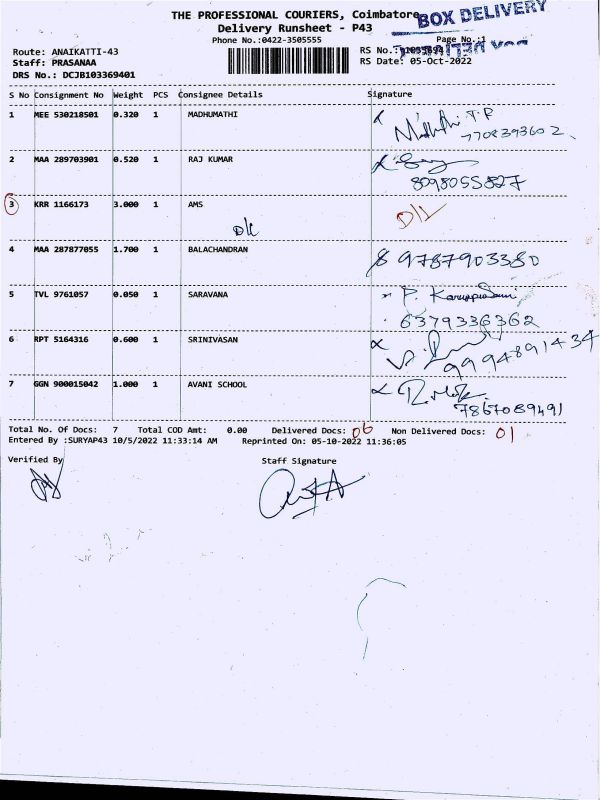 THE PROFESSIONAL COURIERS, Coimbatore
BOX DELIVERY
Delivery Runsheet - P43
Phone No.:0422-3505555
Page No.:1
Route: ANAIKATTI-43
RS No.:
Staff: PRASANAA
RS Date: 05-Oct-2022
DRS No.: DCJB103369401
S No Consignment No Weight PCS Consignee Details Signature
1 MEE 530218501 0.320 1 MADHUMATHI
7708393602
2 MAA 289703901 0.520 1 RAJ KUMAR
8098055827
3 KRR 1166173 3.000 1 AMS
4 MAA 287877055 1.700 1 BALACHANDRAN 9787903380
5 TVL 9761057 0.050 1 SARAVANA
6379336362
6 RPT 5164316 0.600 1 SRINIVASAN
9994891434
7 GGN 900015042 1.000 1 AVANI SCHOOL
7867089491
Total No. Of Docs: 7 Total COD Amt: 0.00 Delivered Docs: 06 Non Delivered Docs: 01
Entered By :SURYAP43 10/5/2022 11:33:14 AM Reprinted On: 05-10-2022 11:36:05
Verified By Staff Signature